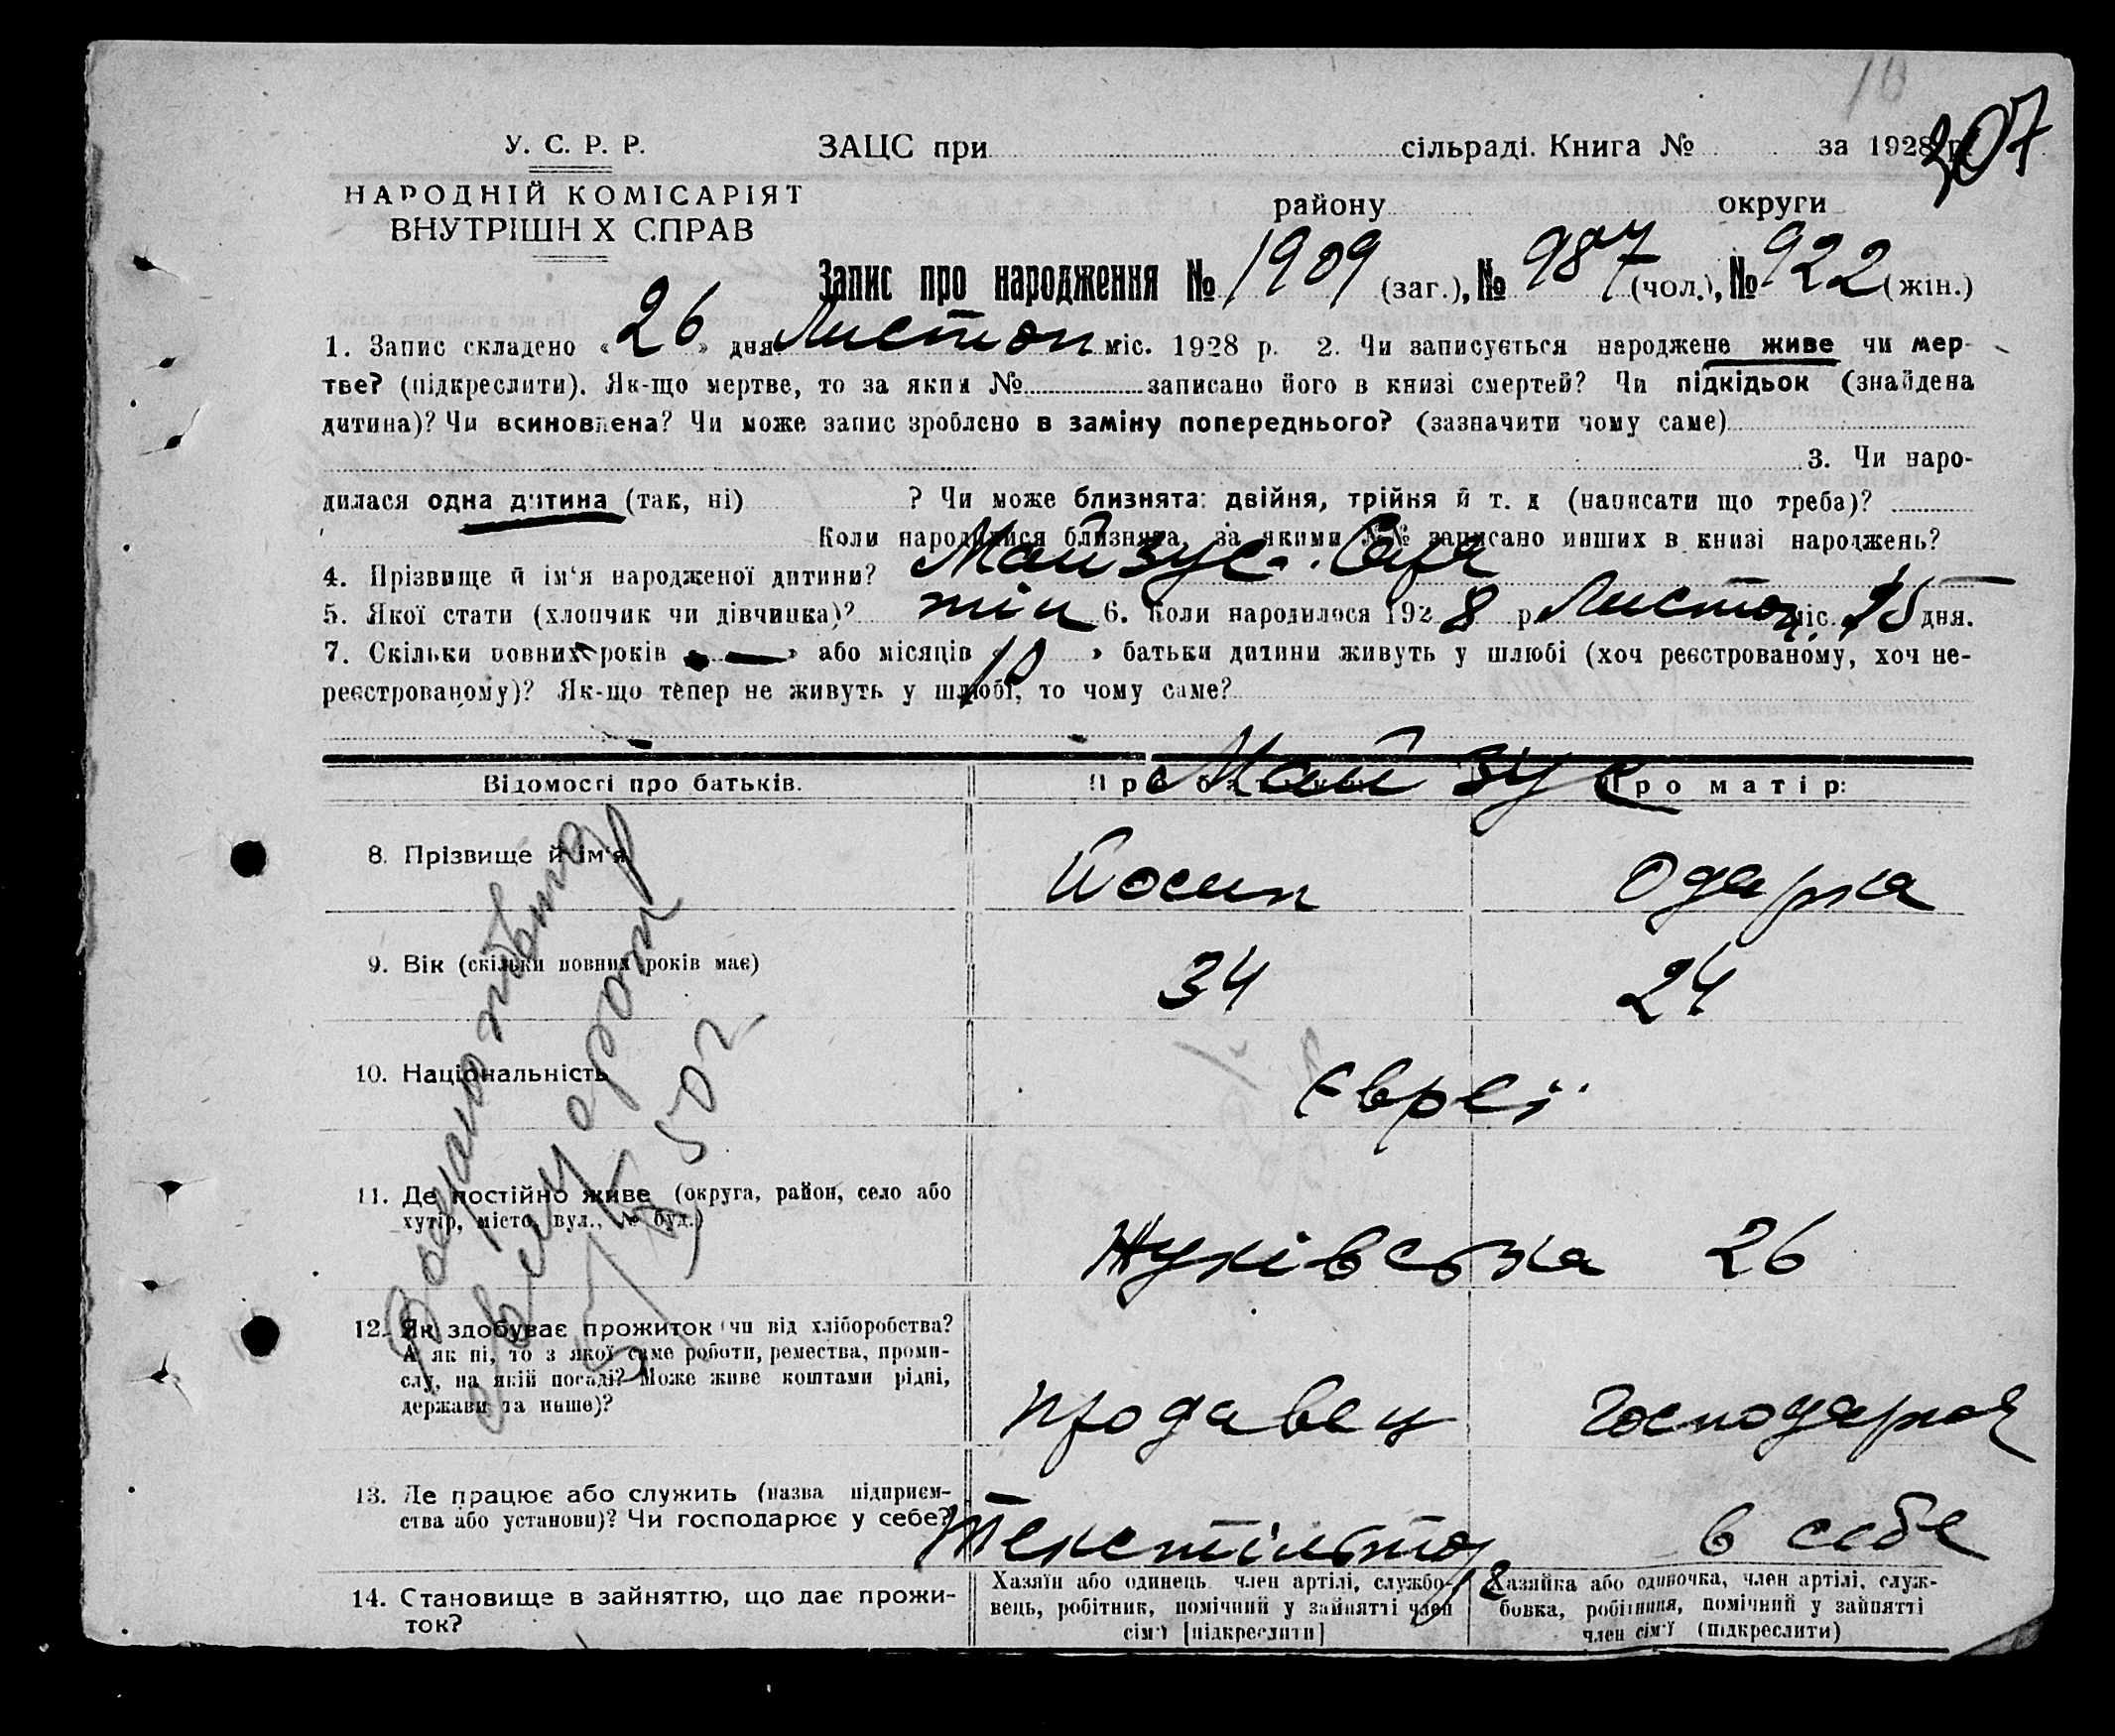 10
207
У. С. Р. Р.
ЗАЦС при сільраді. Книга № за 1928 р.
НАРОДНІЙ КОМІСАРІЯТ
ВНУТРІШН Х СПРАВ
району округи
Запис про народження № 1909 (заг.), № 987 (чол.), № 922 (жін.)
1. Запис складено « 26 » дня Листоп міс. 1928 р. 2. Чи записується народжене живе чи мер-
тве? (підкреслити). Як-що мертве, то за яким № записано його в книзі смертей? Чи підкідьок (знайдена
дитина)? Чи всиновлена? Чи може запис зроблено в заміну попереднього? (зазначити чому саме)
3. Чи наро-
дилася одна дитина (так, ні) ? Чи може близнята: двійня, трійня й т. д (написати що треба)?
Коли народилися близнята, за якими №№ записано инших в книзі народжень?
4. Прізвище й ім‘я народженої дитини? Майзус Сара
5. Якої стати (хлопчик чи дівчинка)? жін 6. Коли народилося 1928 р. Листоп. міс. 25 дня.
7. Скільки повних років « — » або місяців « 10 » батьки дитини живуть у шлюбі (хоч реєстрованому, хоч не-
реєстрованому)? Як-що тепер не живуть у шлюбі, то чому саме?
Відомості про батьків. Про Майзус Про матір:
8. Прізвище й ім‘я Йосип Одарка
9. Вік (скільки повних років має) 34 24
10. Національність Євреї
11. Де постійно живе (округа, район, село або
хутір, місто, вул., № буд.)
Жуківська 26
12. Як здобуває прожиток (чи від хліборобства?
А як ні, то з якої саме роботи, ремества, проми-
слу, на якій посаді? Може живе коштами рідні,
держави та инше)?
продавец господарка
13. Де працює або служить (назва підприєм-
ства або установи)? Чи господарює у себе?
в себе
14. Становище в зайняттю, що дає прожи-
ток?
Хазяїн або одинець член артілі, службо-
вець, робітник, помічний у зайнятті член
сім‘ї [підкреслити]
Хазяйка або одиночка, член артілі, служ-
бовка, робітниця, помічний у зайнятті
член сім‘ї (підкреслити)